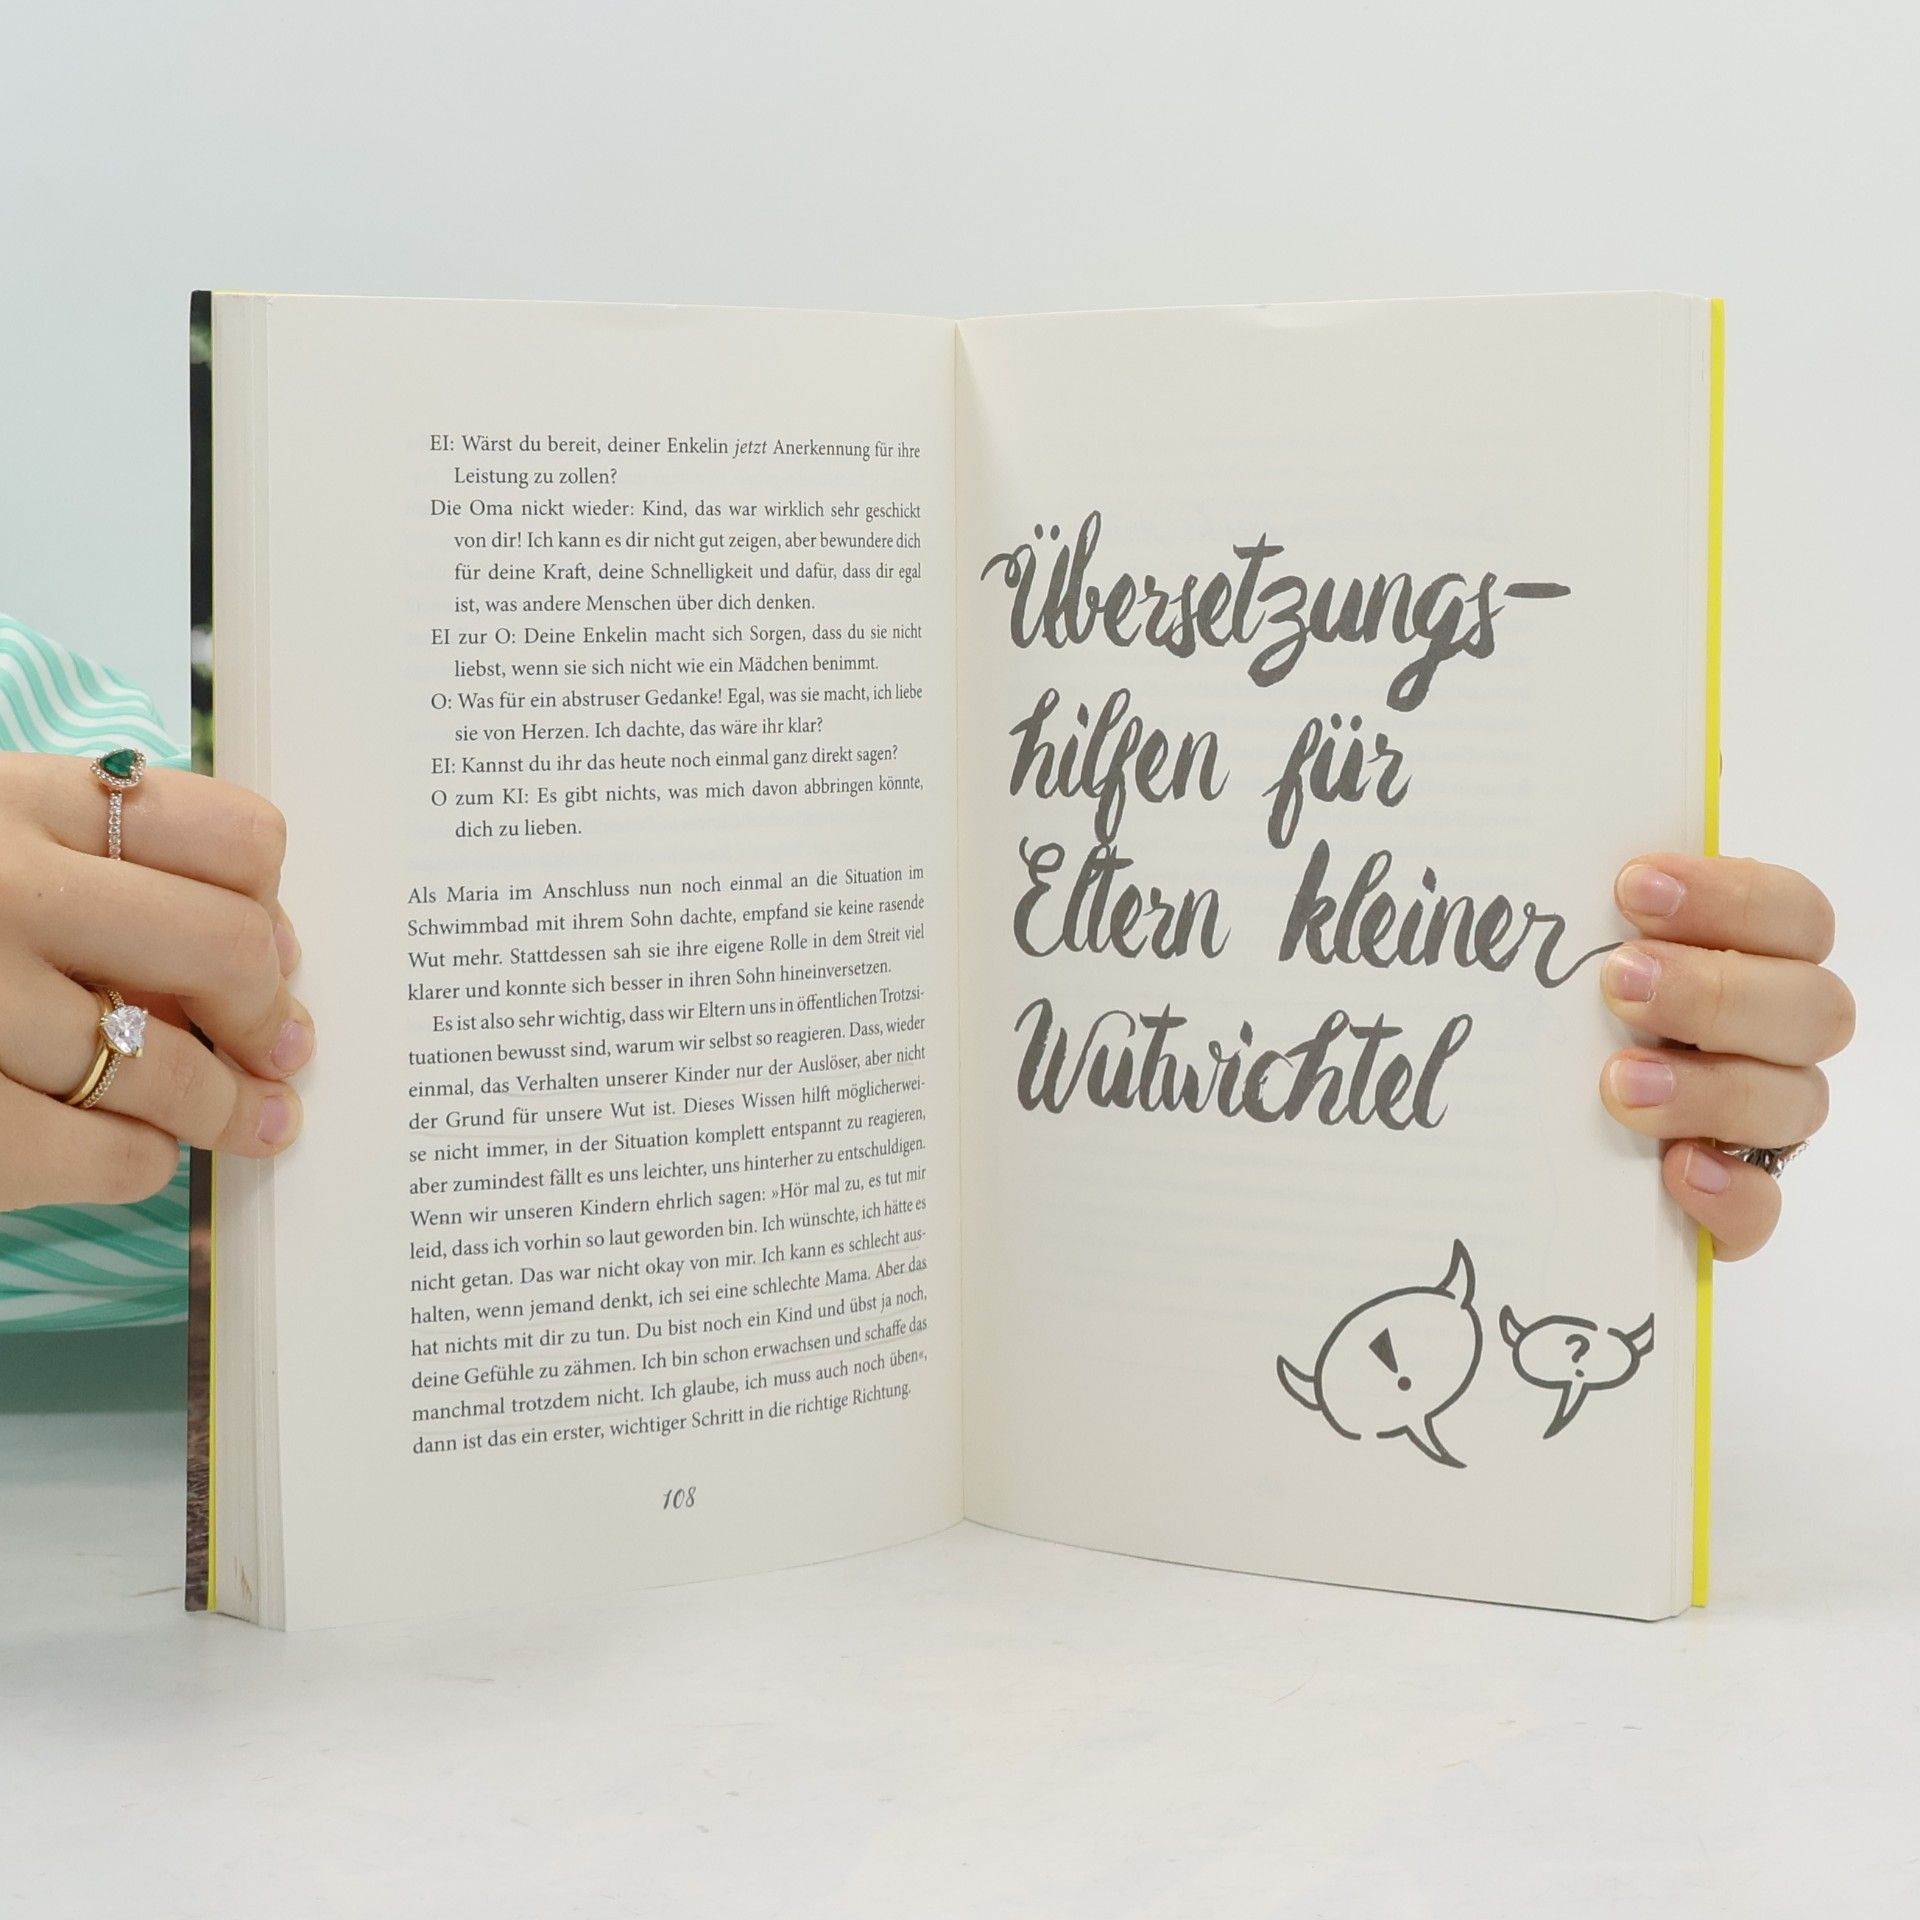 EI: Wärst du bereit, deiner Enkelin jetzt Anerkennung für ihre
Leistung zu zollen?
Die Oma nickt wieder: Kind, das war wirklich sehr geschickt
von dir! Ich kann es dir nicht gut zeigen, aber bewundere dich
für deine Kraft, deine Schnelligkeit und dafür, dass dir egal
ist, was andere Menschen über dich denken.
EI zur O: Deine Enkelin macht sich Sorgen, dass du sie nicht
liebst, wenn sie sich nicht wie ein Mädchen benimmt.
O: Was für ein abstruser Gedanke! Egal, was sie macht, ich liebe
sie von Herzen. Ich dachte, das wäre ihr klar?
EI: Kannst du ihr das heute noch einmal ganz direkt sagen?
O zum KI: Es gibt nichts, was mich davon abbringen könnte,
dich zu lieben.
Als Maria im Anschluss nun noch einmal an die Situation im
Schwimmbad mit ihrem Sohn dachte, empfand sie keine rasende
Wut mehr. Stattdessen sah sie ihre eigene Rolle in dem Streit viel
klarer und konnte sich besser in ihren Sohn hineinversetzen.
Es ist also sehr wichtig, dass wir Eltern uns in öffentlichen Trotzsi-
tuationen bewusst sind, warum wir selbst so reagieren. Dass, wieder
einmal, das Verhalten unserer Kinder nur der Auslöser, aber nicht
der Grund für unsere Wut ist. Dieses Wissen hilft möglicherwei-
se nicht immer, in der Situation komplett entspannt zu reagieren,
aber zumindest fällt es uns leichter, uns hinterher zu entschuldigen.
Wenn wir unseren Kindern ehrlich sagen: »Hör mal zu, es tut mir
leid, dass ich vorhin so laut geworden bin. Ich wünschte, ich hätte es
nicht getan. Das war nicht okay von mir. Ich kann es schlecht aus-
halten, wenn jemand denkt, ich sei eine schlechte Mama. Aber das
hat nichts mit dir zu tun. Du bist noch ein Kind und übst ja noch,
deine Gefühle zu zähmen. Ich bin schon erwachsen und schaffe das
manchmal trotzdem nicht. Ich glaube, ich muss auch noch üben«,
dann ist das ein erster, wichtiger Schritt in die richtige Richtung.
108
Übersetzungs-
hilfen für
Eltern kleiner
Wutwichtel
!
?